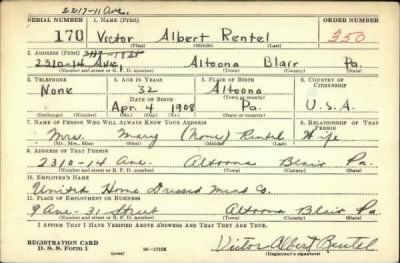 2217-11 Ave.
SERIAL NUMBER 1. NAME (Print) ORDER NUMBER
170 Victor Albert Rentel 350
(First) (Middle) (Last)
2. ADDRESS (Print)
2310-14 Ave. Altoona Blair Pa.
(Number and street or R. F. D. number) (Town) (County) (State)
3. TELEPHONE 4. AGE IN YEARS 5. PLACE OF BIRTH 6. COUNTRY OF CITIZENSHIP
None 32 Altoona
DATE OF BIRTH (Town or county)
Apr. 4 1908 Pa. U.S.A.
(Mo.) (Day) (Yr.) (State or country)
7. NAME OF PERSON WHO WILL ALWAYS KNOW YOUR ADDRESS 8. RELATIONSHIP OF THAT PERSON
Mrs. Mary (None) Rentel Wife
(Mr., Mrs., Miss) (First) (Middle) (Last)
9. ADDRESS OF THAT PERSON
2310-14 Ave. Altoona Blair Pa.
(Number and street or R. F. D. number) (Town) (County) (State)
10. EMPLOYER'S NAME
United Home Dressed Meat Co.
11. PLACE OF EMPLOYMENT OR BUSINESS
9 Ave-31 Street Altoona Blair Pa.
(Number and street or R. F. D. number) (Town) (County) (State)
I AFFIRM THAT I HAVE VERIFIED ABOVE ANSWERS AND THAT THEY ARE TRUE.
REGISTRATION CARD
D. S. S. Form 1 (over) 16-17105 Victor Albert Rentel
(Registrant's signature)